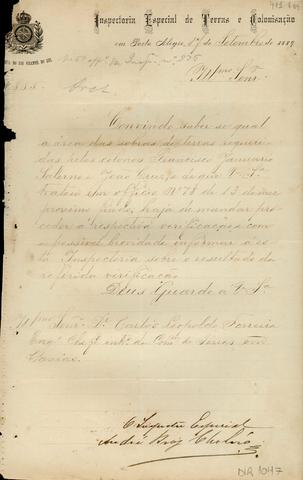 Inspectoria Especial de Terras e Colonisação
em Porto Alegre 17 de Setembro de 1889
Illmo Senr.
Convindo saber-se qual
a área das sobras de terras requeri-
das pelos colonos Francisco
Salerno e João de que V. Sa
tratou em officio No 78 de 13 do mez
proximo findo, haja de mandar pro-
ceder á respectiva verificação e com
a possivel brevidade informar a es-
ta Inspectoria sobre o resultado da
referida verificação.
Deus Guarde a V. Sa
Illmo Senr. Dr. Carlos Leopoldo Ferreira
Engo Chefe de Terras em
Caxias.
O Inspector Especial
André
DIR 1047